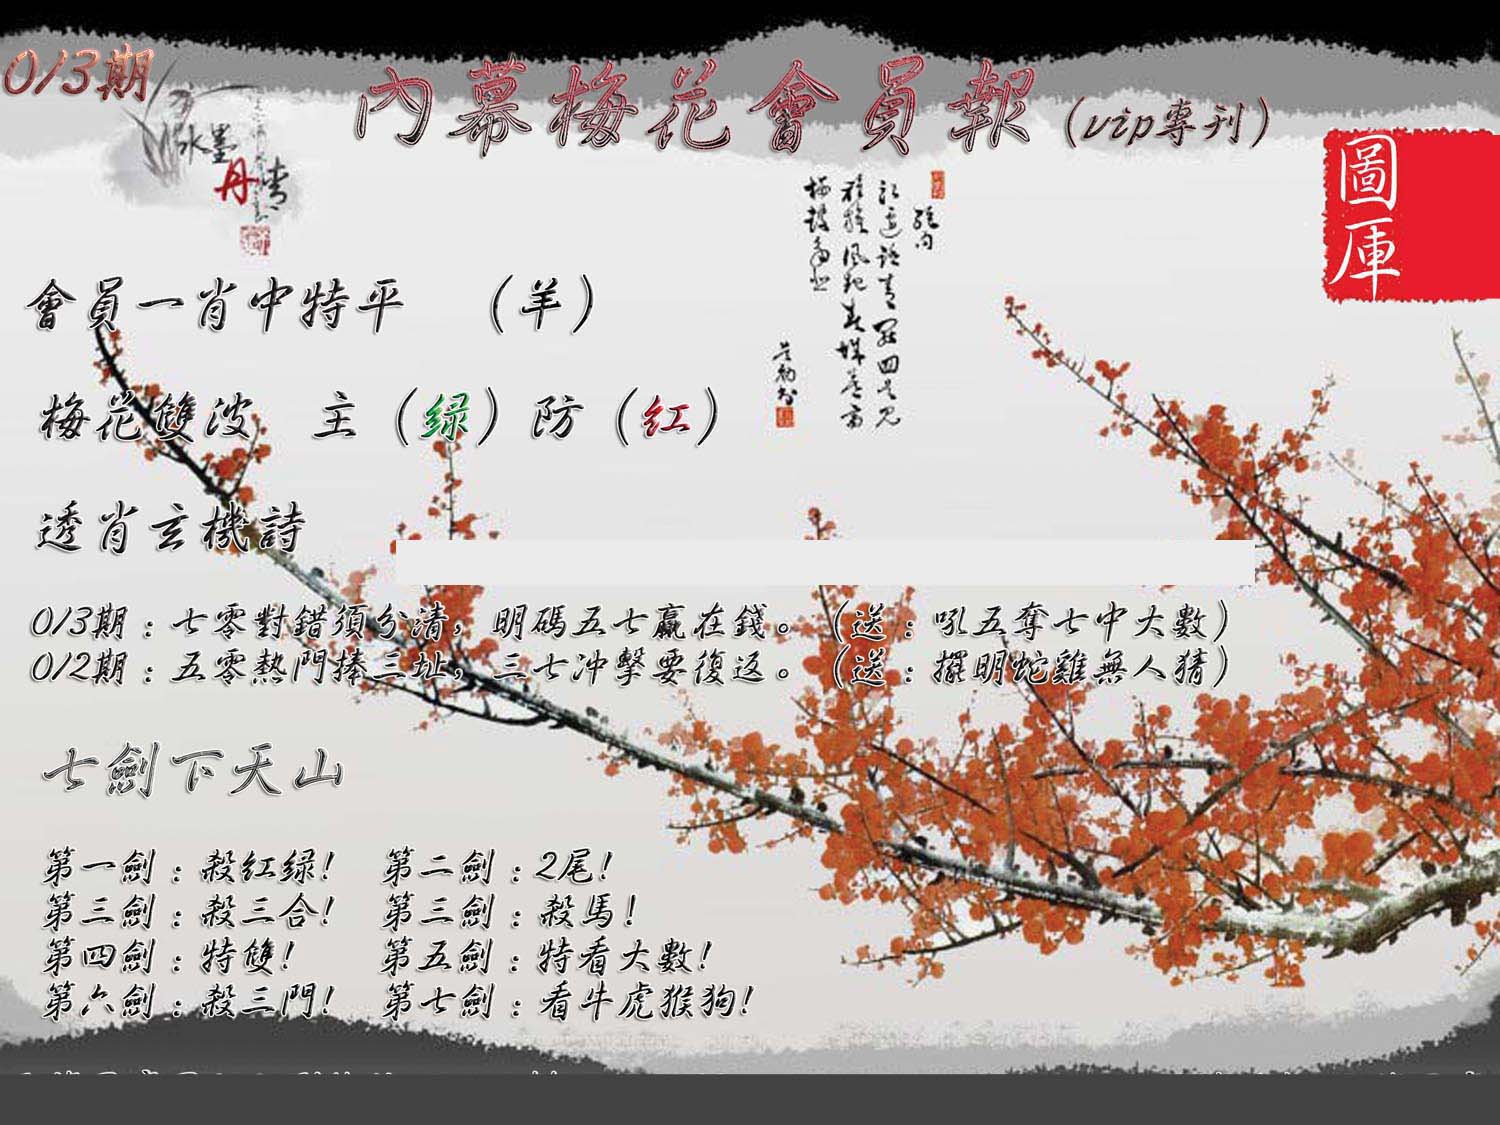 013期
內幕梅花會員報(vip專刊)
水墨
丹青
圖庫
會員一肖中特平 (羊)
梅花雙波 主(绿)防(红)
透肖玄機詩
013期:七零對錯須分清,明碼五七贏在錢。(送:吼五奪七中大數)
012期:五零熱門捧三址,三七冲擊要復返。(送:擺明蛇雞無人猜)
七劍下天山
第一劍:殺紅緑! 第二劍:2尾!
第三劍:殺三合! 第三劍:殺馬!
第四劍:特雙! 第五劍:特看大數!
第六劍:殺三門! 第七劍:看牛虎猴狗!